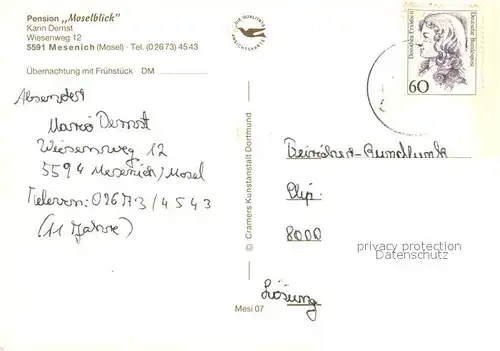 Pension „Moselblick"
Karin Dernst
Wiesenweg 12
5591 Mesenich (Mosel) - Tel. (0 26 73) 45 43
Übernachtung mit Frühstück DM
Absender
Mario Dernst
Wiesenweg 12
5594 Mesenich/Mosel
02673/4543
(11 Jahre)
© Cramers Kunstanstalt Dortmund
Mesi 07
DIE QUALITÄTS
Deutsche Bundespost
60
Clip
8000
Lösung
privacy protection
Datenschutz